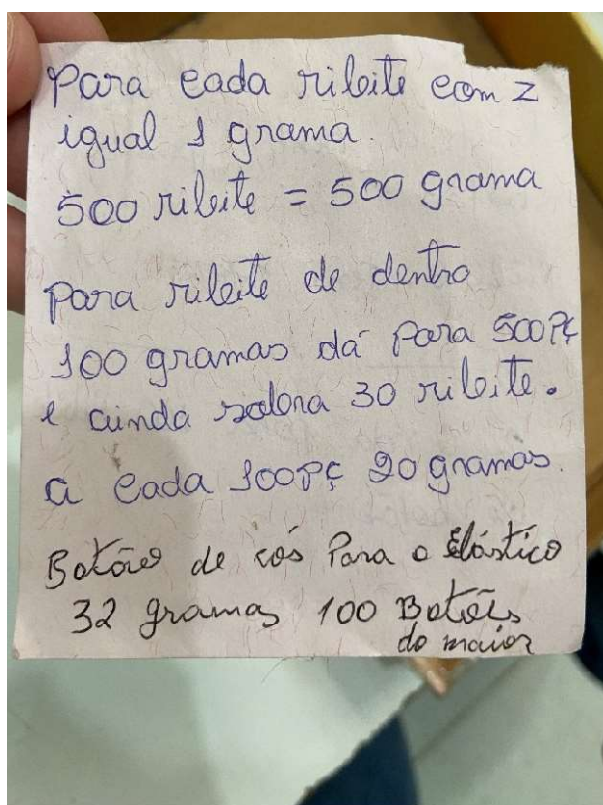 Para cada ribite com z
igual 1 grama.
500 ribite = 500 grama
Para ribite de dentro
100 gramas dá para 500Pç
e ainda sobra 30 ribite.
a cada 100Pç 20 gramas.
Botão de cós Para o elástico
32 gramas 100 Botões
do maior